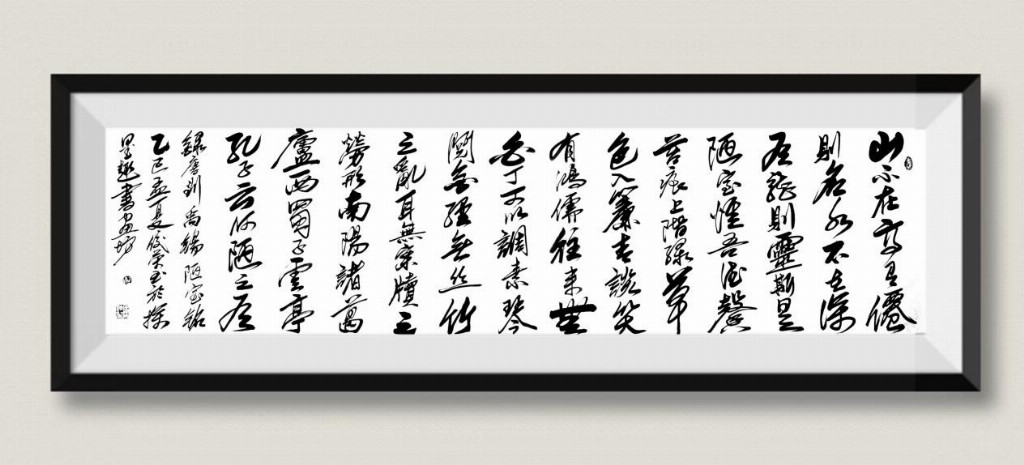 山不在高有僊
则名水不在深
有龍則靈斯是
陋室惟吾德馨
苔痕上階綠草
色入簾青談笑
有鴻儒往来無
白丁可以調素琴
閲金經無丝竹
之亂耳無案牘之
勞形南陽諸葛
廬西蜀子雲亭
孔子云何陋之有
録唐刘禹錫陋室銘
乙巳孟夏於
墨趣書画坊